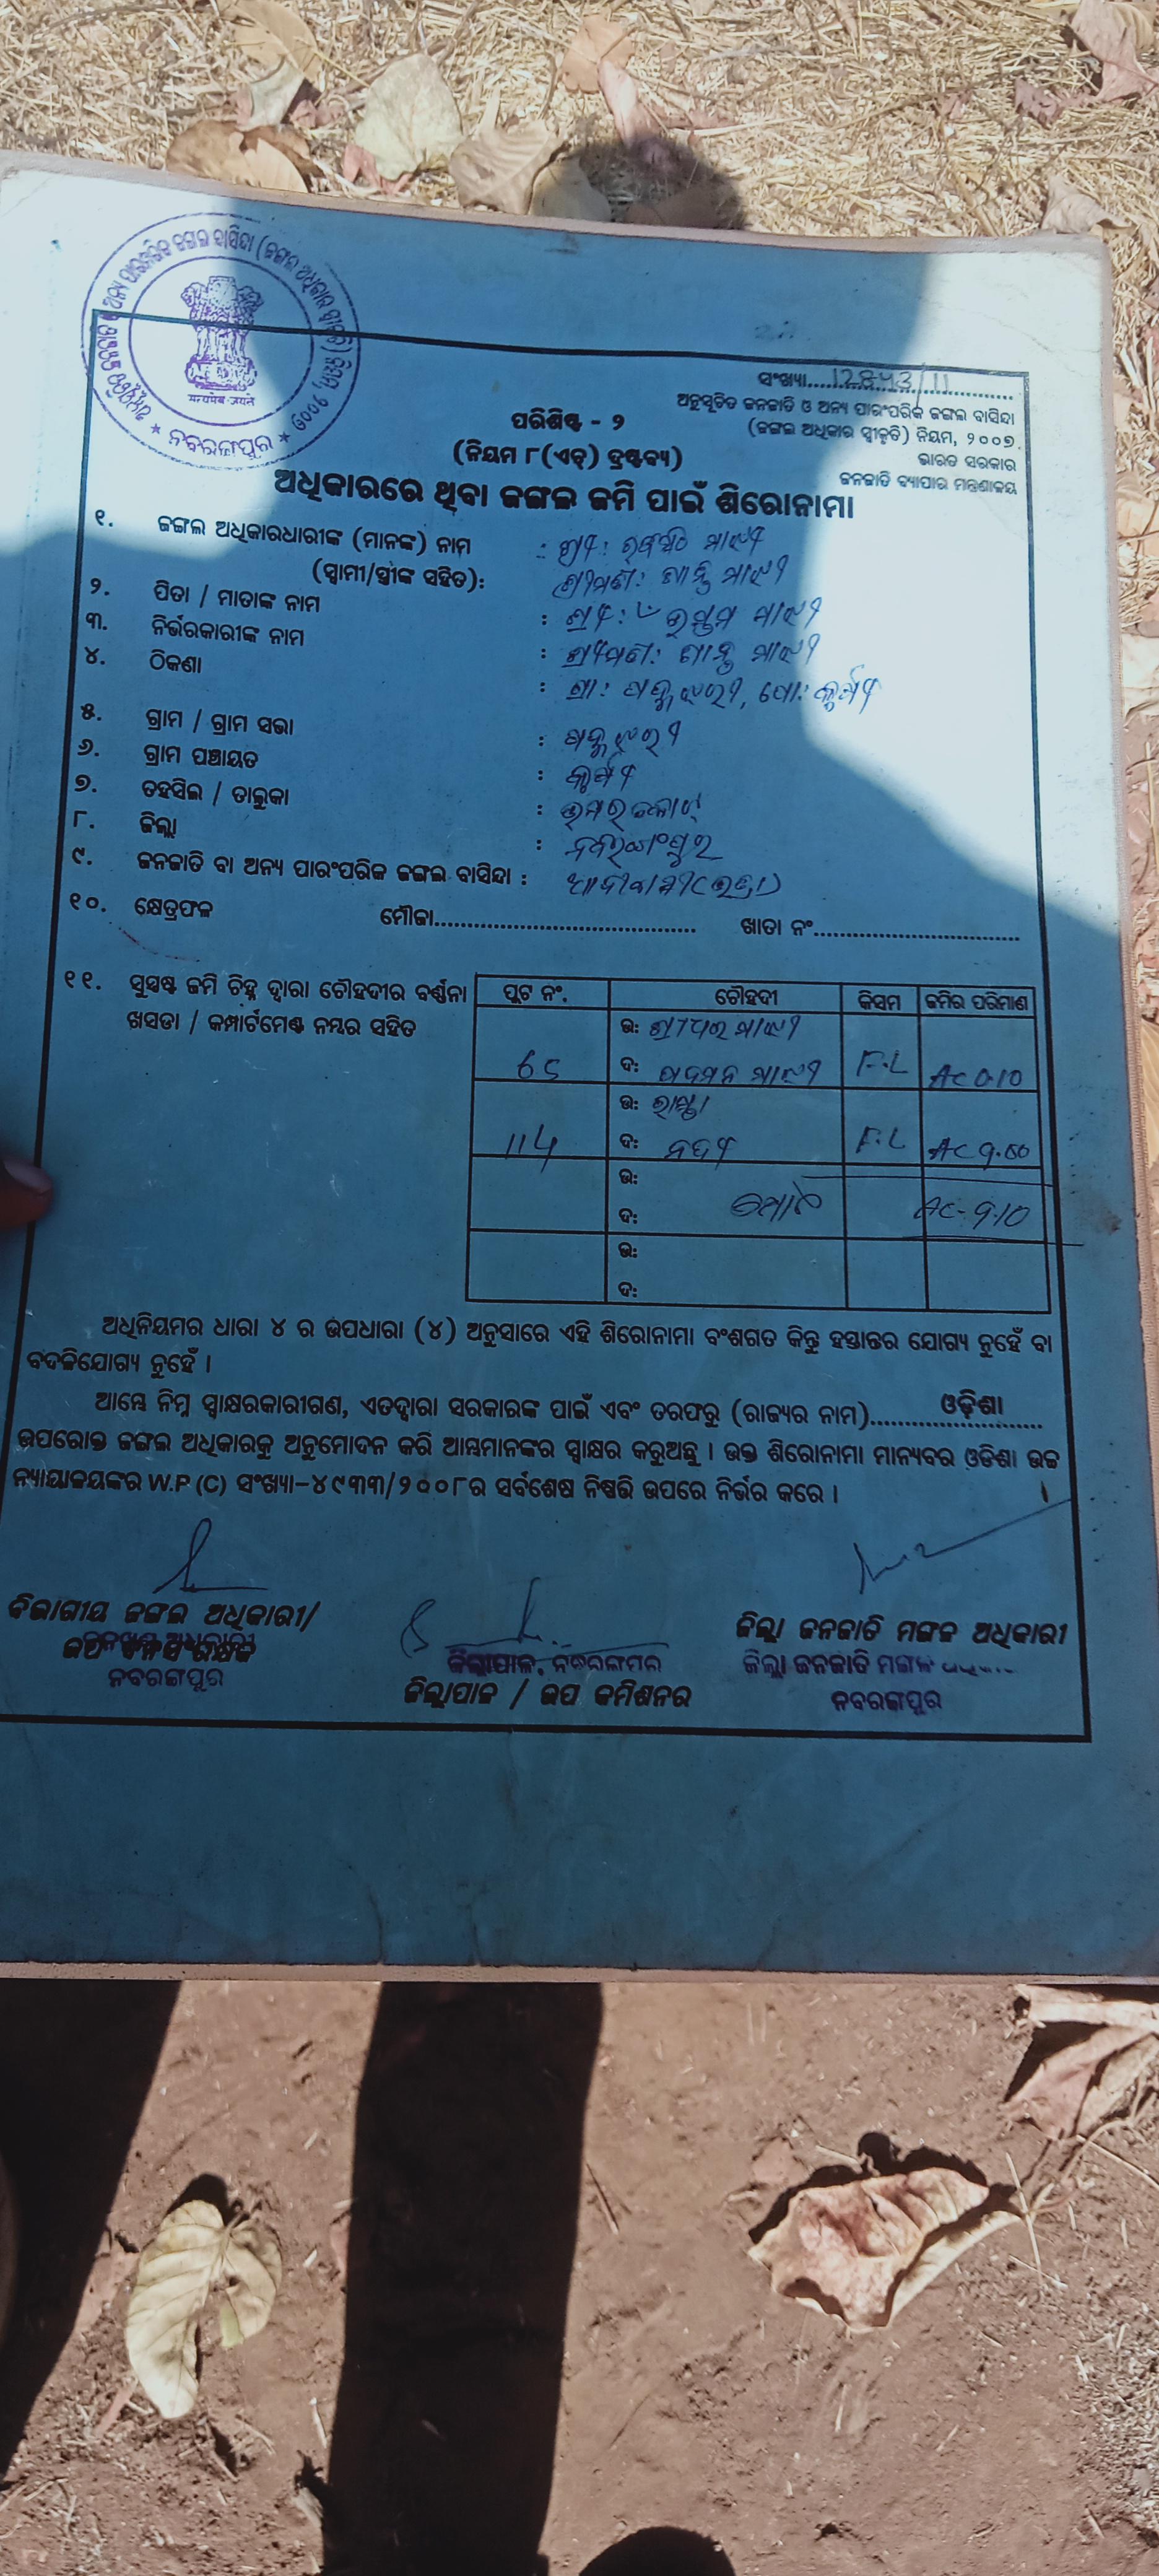 ଅନୁସୂଚିତ ଜନଜାତି ଓ ଅନ୍ୟ ପାରମ୍ପରିକ ଜଙ୍ଗଲ ବାସିନ୍ଦା (ଜଙ୍ଗଲ ଅଧିକାର ସ୍ୱୀକୃତି) ନିୟମ, ୨୦୦୭
सत्यमेव जयते
★ ନବରଙ୍ଗପୁର ★
ସଂଖ୍ୟା....
ଅନୁସୂଚିତ ଜନଜାତି ଓ ଅନ୍ୟ ପାରଂପରିକ ଜଙ୍ଗଲ ବାସିନ୍ଦା
(ଜଙ୍ଗଲ ଅଧିକାର ସ୍ୱୀକୃତି) ନିୟମ, ୨୦୦୭
ଭାରତ ସରକାର
ଜନଜାତି ବ୍ୟାପାର ମନ୍ତ୍ରଣାଳୟ
ପରିଶିଷ୍ଟ - ୨
(ନିୟମ ୮(ଏଚ୍) ଦ୍ରଷ୍ଟବ୍ୟ)
ଅଧିକାରରେ ଥିବା ଜଙ୍ଗଲ ଜମି ପାଇଁ ଶିରୋନାମା
୧. ଜଙ୍ଗଲ ଅଧିକାରଧାରୀଙ୍କ (ମାନଙ୍କ) ନାମ : ଶ୍ରୀ: ମାଝୀ
(ସ୍ୱାମୀ/ସ୍ତ୍ରୀଙ୍କ ସହିତ): ଶ୍ରୀମତୀ: ମାଝୀ
୨. ପିତା / ମାତାଙ୍କ ନାମ : ଶ୍ରୀ: ମାଝୀ
୩. ନିର୍ଭରକାରୀଙ୍କ ନାମ : ଶ୍ରୀମତୀ: ମାଝୀ
୪. ଠିକଣା : ଗ୍ରା: ପୋ:
୫. ଗ୍ରାମ / ଗ୍ରାମ ସଭା :
୬. ଗ୍ରାମ ପଞ୍ଚାୟତ :
୭. ତହସିଲ / ତାଲୁକା : ଉମରକୋଟ୍
୮. ଜିଲ୍ଲା : ନବରଙ୍ଗପୁର
୯. ଜନଜାତି ବା ଅନ୍ୟ ପାରଂପରିକ ଜଙ୍ଗଲ ବାସିନ୍ଦା : ଆଦୀବାସୀ
୧୦. କ୍ଷେତ୍ରଫଳ ମୌଜା.................... ଖାତା ନଂ....................
୧୧. ସୁସ୍ପଷ୍ଟ ଜମି ଚିହ୍ନ ଦ୍ୱାରା ଚୌହଦୀର ବର୍ଣ୍ଣନା
ଖସଡା / କମ୍ପାର୍ଟମେଣ୍ଟ ନମ୍ବର ସହିତ
ପ୍ଲଟ ନଂ. ଚୌହଦୀ କିସମ ଜମିର ପରିମାଣ
ଉ: ଶ୍ରୀଧର ମାଝୀ
65 ଦ: ମାଝୀ F.L AC 0.10
ଉ: ରାସ୍ତା
114 ଦ: ନଦୀ F.L
ଉ:
ଦ: ମୋଟ
ଉ:
ଦ:
ଅଧିନିୟମର ଧାରା ୪ ର ଉପଧାରା (୪) ଅନୁସାରେ ଏହି ଶିରୋନାମା ବଂଶଗତ କିନ୍ତୁ ହସ୍ତାନ୍ତର ଯୋଗ୍ୟ ନୁହେଁ ବା
ବଦଳିଯୋଗ୍ୟ ନୁହେଁ ।
ଆମ୍ଭେ ନିମ୍ନ ସ୍ୱାକ୍ଷରକାରୀଗଣ, ଏତଦ୍ୱାରା ସରକାରଙ୍କ ପାଇଁ ଏବଂ ତରଫରୁ (ରାଜ୍ୟର ନାମ)....ଓଡ଼ିଶା....
ଉପରୋକ୍ତ ଜଙ୍ଗଲ ଅଧିକାରକୁ ଅନୁମୋଦନ କରି ଆମ୍ଭମାନଙ୍କର ସ୍ୱାକ୍ଷର କରୁଅଛୁ । ଉକ୍ତ ଶିରୋନାମା ମାନ୍ୟବର ଓଡିଶା ଉଚ୍ଚ
ନ୍ୟାୟାଳୟଙ୍କର W.P (C) ସଂଖ୍ୟା-୪୯୩୩/୨୦୦୮ର ସର୍ବଶେଷ ନିଷ୍ପତ୍ତି ଉପରେ ନିର୍ଭର କରେ ।
ବିଭାଗୀୟ ଜଙ୍ଗଲ ଅଧିକାରୀ/
ନବରଙ୍ଗପୁର
ଜିଲ୍ଲାପାଳ, ନବରଙ୍ଗପୁର
ଜିଲ୍ଲାପାଳ / ଉପ କମିଶନର
ଜିଲ୍ଲା ଜନଜାତି ମଙ୍ଗଳ ଅଧିକାରୀ
ଜିଲ୍ଲା ଜନଜାତି ମଙ୍ଗଳ
ନବରଙ୍ଗପୁର